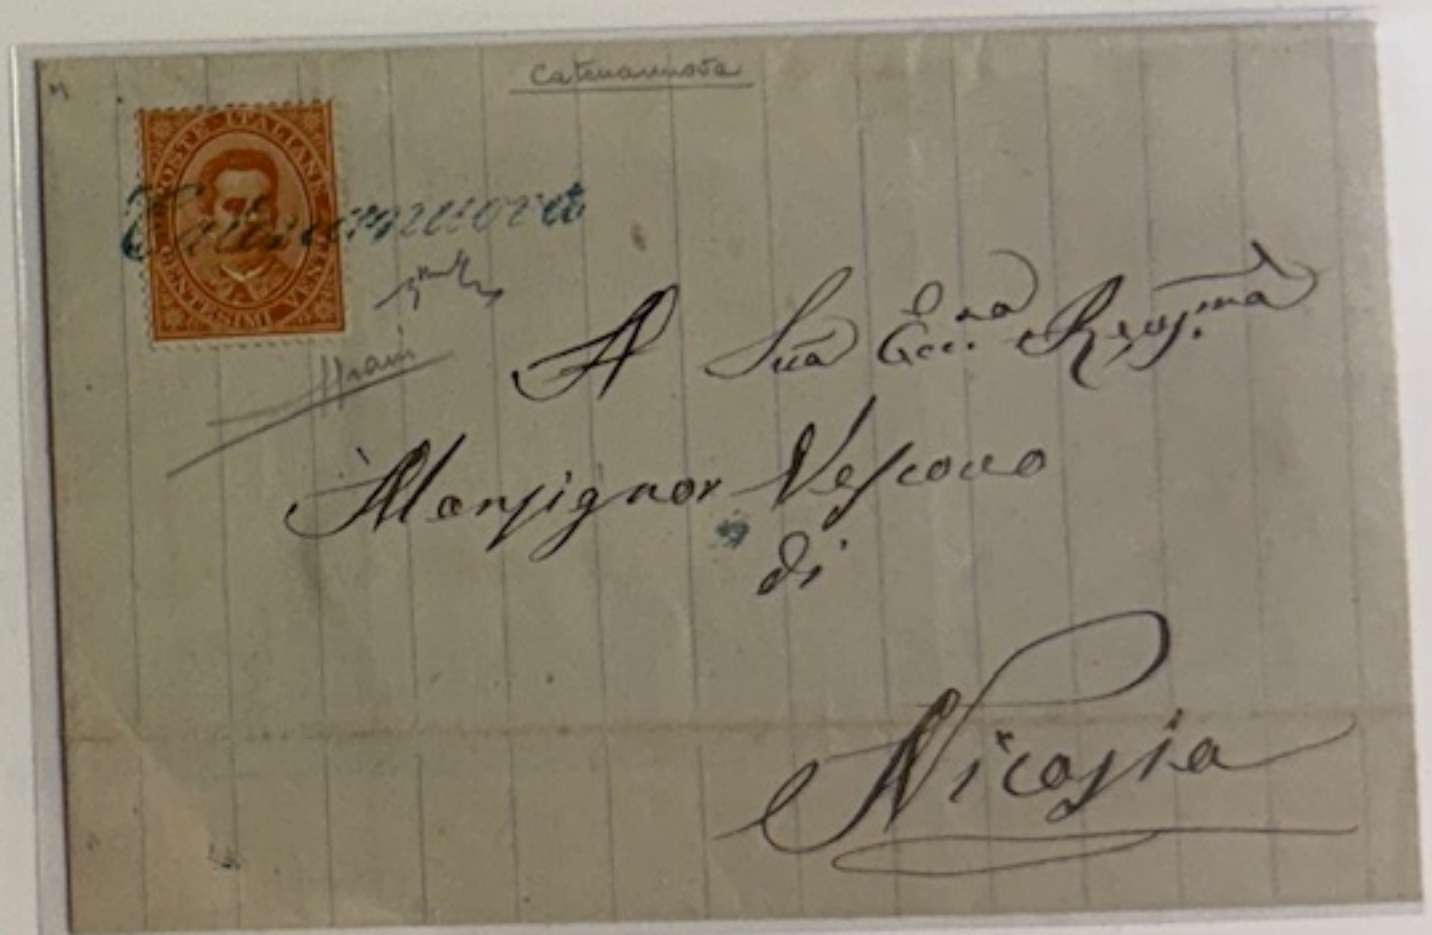 Catenanuova
POSTE ITALIANE
CENTESIMI VENTI
Catenanuova
A Sua Ecc.za Revs.ma
Monsignor Vescovo
di
Nicosia